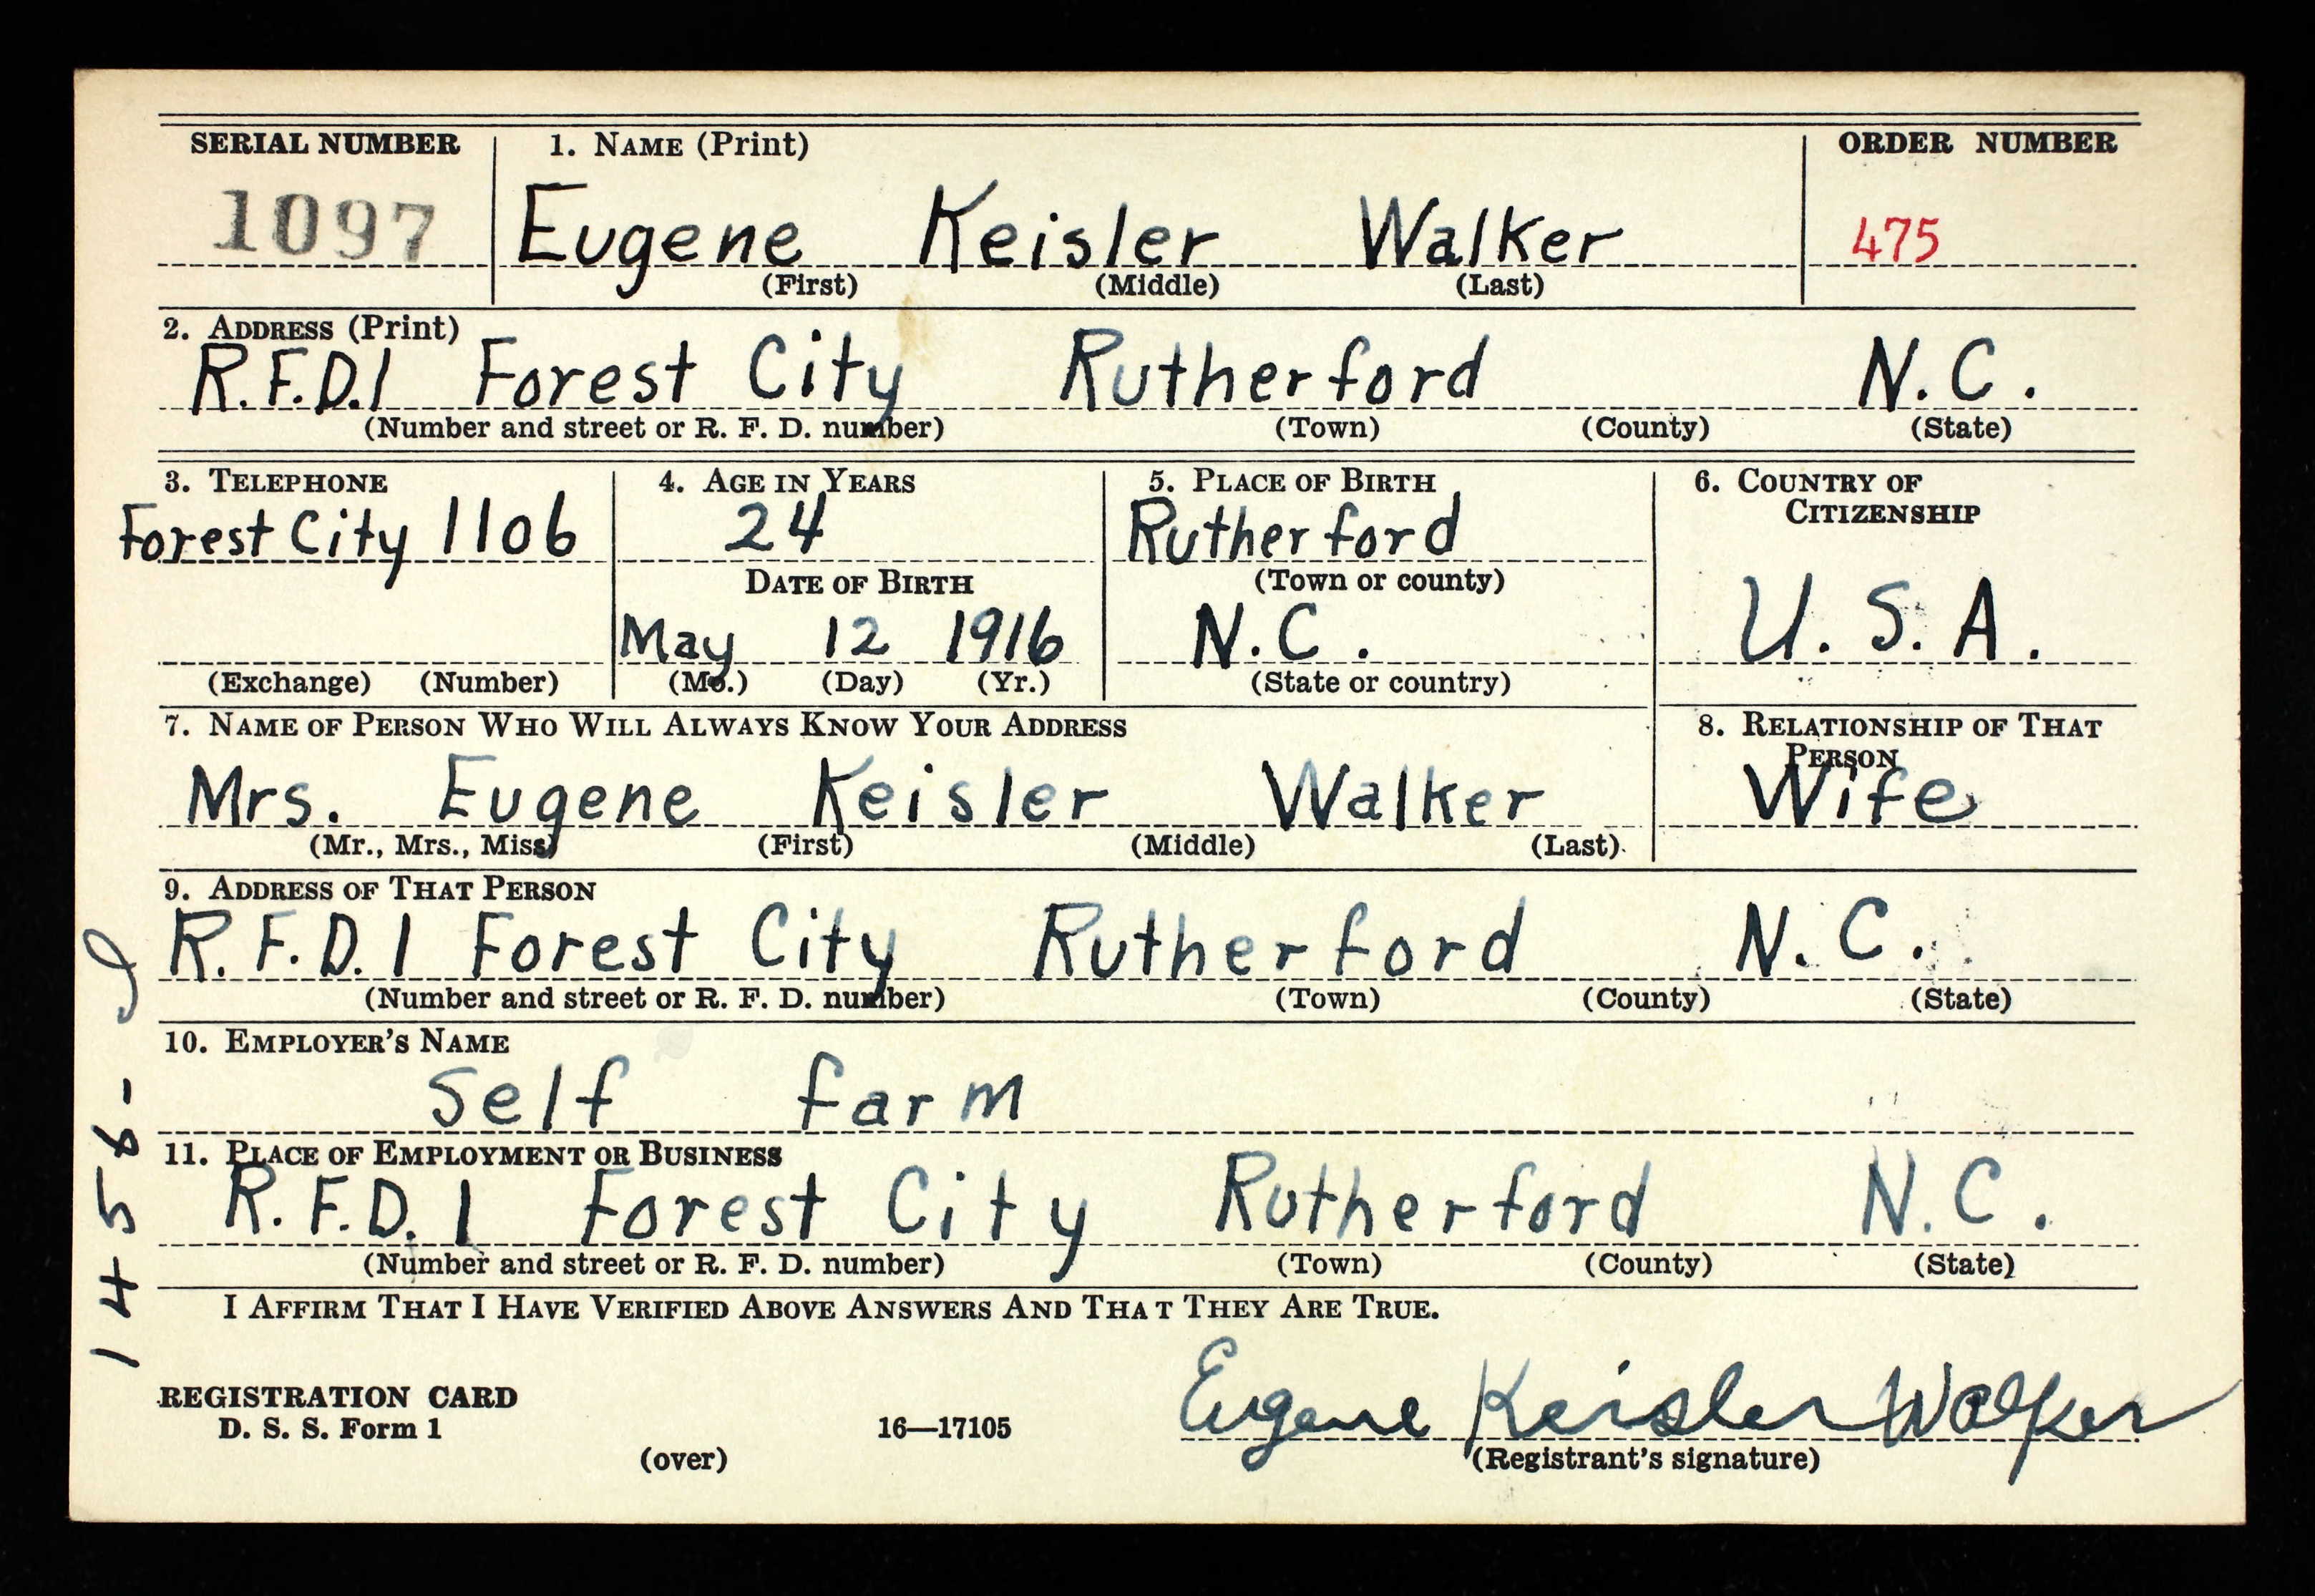 SERIAL NUMBER 1. NAME (Print) ORDER NUMBER
1097 Eugene Keisler Walker 475
(First) (Middle) (Last)
2. ADDRESS (Print)
R.F.D.1 Forest City Rutherford N.C.
(Number and street or R. F. D. number) (Town) (County) (State)
3. TELEPHONE 4. AGE IN YEARS 5. PLACE OF BIRTH 6. COUNTRY OF
CITIZENSHIP
Forest City 1106 24 Rutherford
DATE OF BIRTH (Town or county)
May 12 1916 N.C. U.S.A.
(Exchange) (Number) (Mo.) (Day) (Yr.) (State or country)
7. NAME OF PERSON WHO WILL ALWAYS KNOW YOUR ADDRESS 8. RELATIONSHIP OF THAT
PERSON
Mrs. Eugene Keisler Walker Wife
(Mr., Mrs., Miss) (First) (Middle) (Last)
9. ADDRESS OF THAT PERSON
R.F.D.1 Forest City Rutherford N.C.
(Number and street or R. F. D. number) (Town) (County) (State)
10. EMPLOYER'S NAME
Self farm
11. PLACE OF EMPLOYMENT OR BUSINESS
R.F.D.1 Forest City Rutherford N.C.
(Number and street or R. F. D. number) (Town) (County) (State)
I AFFIRM THAT I HAVE VERIFIED ABOVE ANSWERS AND THAT THEY ARE TRUE.
REGISTRATION CARD
D. S. S. Form 1 16—17105 Eugene Keisler Walker
(over) (Registrant's signature)